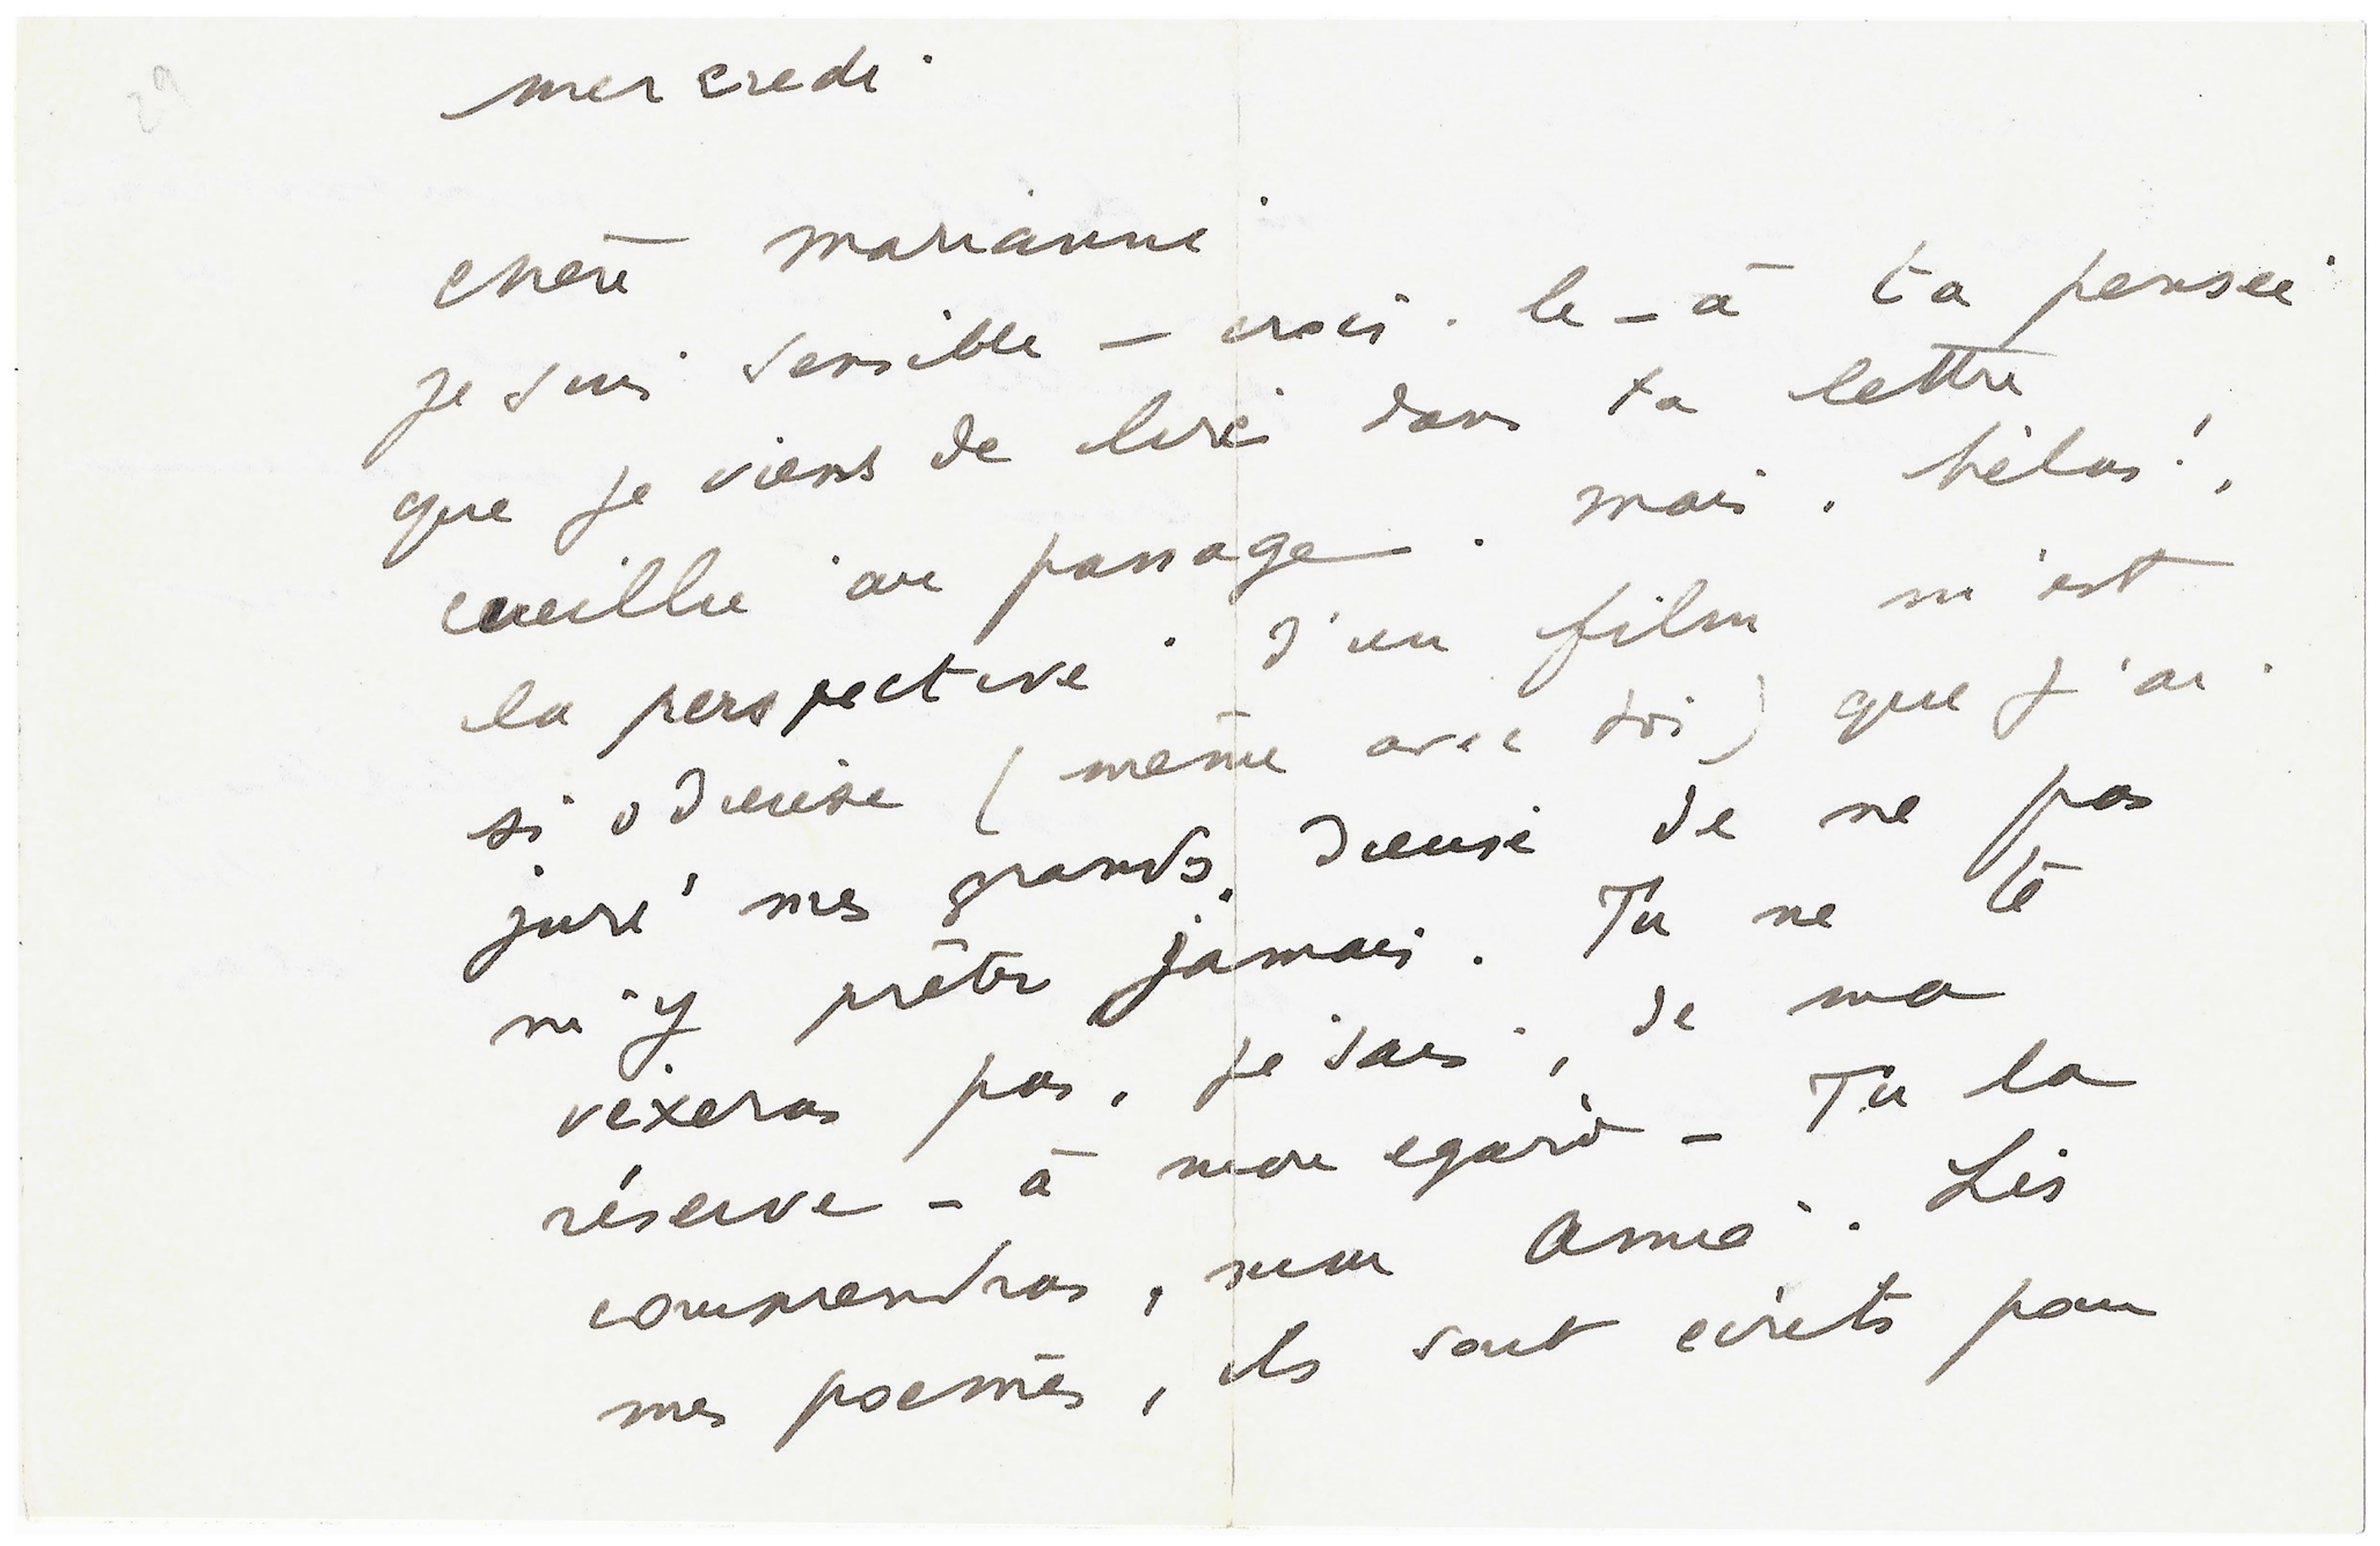 mercredi
chère marianne
je suis sensible – crois-le – à ta pensée
que je viens de lire dans ta lettre
cueillie au passage. mais, hélas!,
la perspective d'un film m'est
si odieuse (même avec toi) que j'ai
juré mes grands dieux de ne pas
m'y prêter jamais. Tu ne te
vexeras pas, je sais, de ma
réserve – à mon égard – Tu la
comprendras, mon Amie. Lis
mes poèmes, ils sont écrits pour